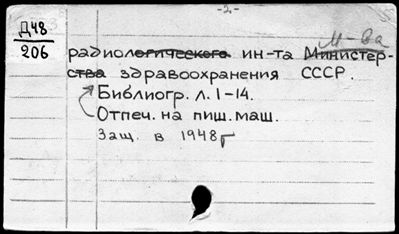 -2-
Д48
206
М-ва
радиологического ин-та Министер-
ства здравоохранения СССР.
Библиогр. л. 1-14.
Отпеч. на пиш. маш.
Защ. в 1948г